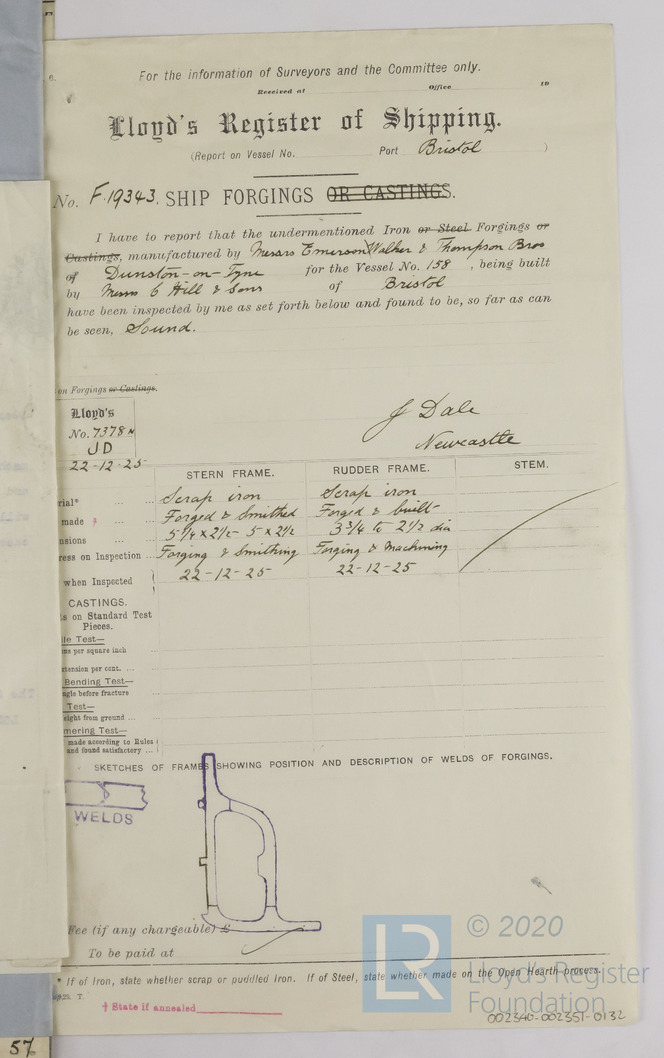 6.
For the information of Surveyors and the Committee only.
Received at Office 19
Lloyd's Register of Shipping.
(Report on Vessel No. Port Bristol )
No. F.19343. SHIP FORGINGS OR CASTINGS.
I have to report that the undermentioned Iron or Steel Forgings or
Castings, manufactured by Messrs Emerson Walker & Thompson Bros
of Dunston-on-Tyne for the Vessel No. 158 , being built
by Messrs C Hill & Sons of Bristol
have been inspected by me as set forth below and found to be, so far as can
be seen, Sound.
on Forgings or Castings.
Lloyd's
No. 7378 N
JD
22-12-25
J Dale
Newcastle
STERN FRAME. RUDDER FRAME. STEM.
rial* ... ... Scrap iron Scrap iron
made † ... ... Forged & Smithed Forged & built
nsions ... ... 5 1/4 x 2 1/2 - 5 x 2 1/2 3 3/4 to 2 1/2 dia
ress on Inspection ... Forging & Smithing Forging & Machining
when Inspected 22-12-25 22-12-25
CASTINGS.
ts on Standard Test
Pieces.
ile Test—
ns per square inch ...
xtension per cent. ...
Bending Test—
ngle before fracture
Test—
eight from ground ...
mering Test—
made according to Rules
and found satisfactory ...
SKETCHES OF FRAMES SHOWING POSITION AND DESCRIPTION OF WELDS OF FORGINGS.
WELDS
Fee (if any chargeable) £
To be paid at
* If of Iron, state whether scrap or puddled Iron. If of Steel, state whether made on the Open Hearth process.
† State if annealed
LR
© 2020
Lloyd's Register
Foundation
002340-002351-0132
57